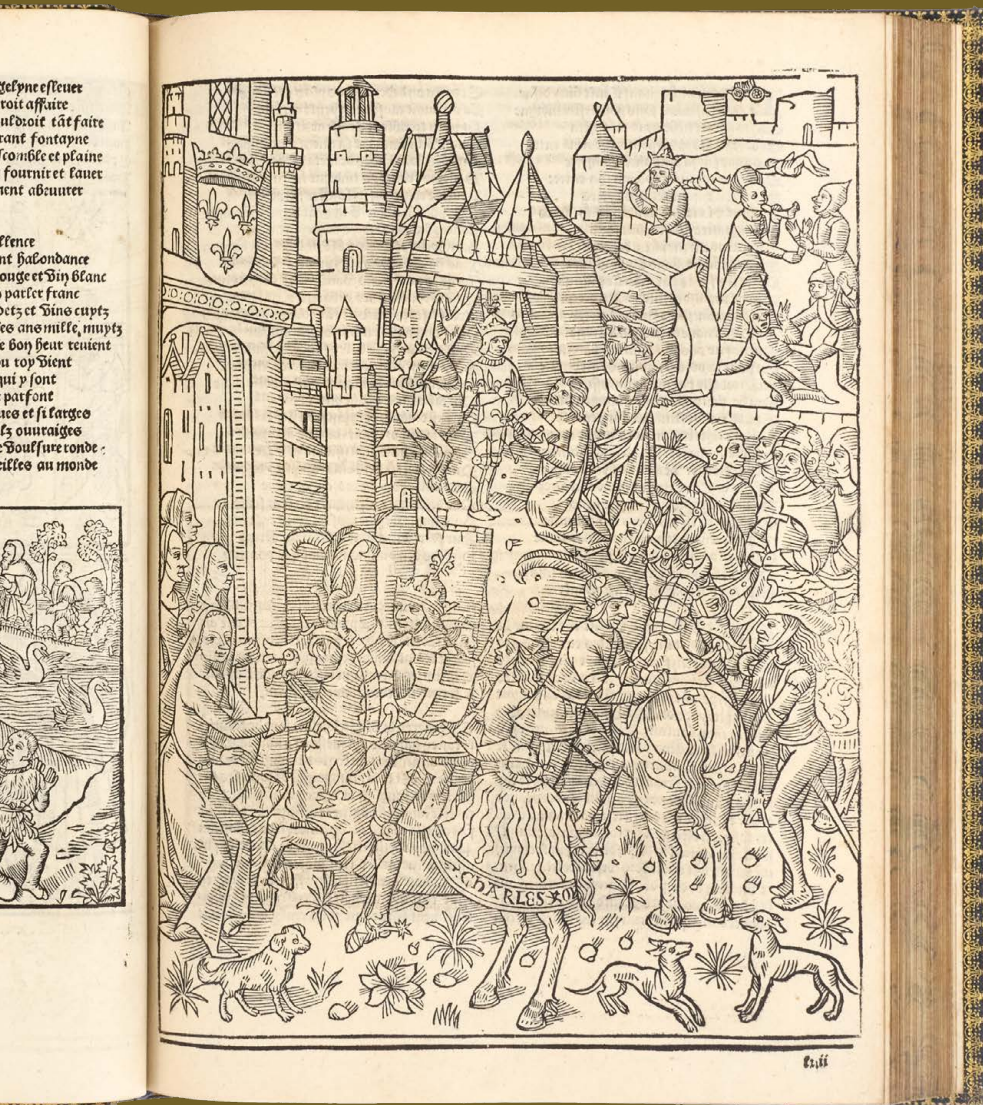 gelyne eslever
roit affaire
uldroit tāt faire
rant fontayne
scomble et plaine
fournir et laver
ment abeuurer
llence
nt habondance
ouge et Vin blanc
parler franc
detz et Vins cuytz
es ans mille, muytz
e bon heur reuient
ou roy Vient
qui y sont
parfont
ues et si larges
lz ouuraiges
e Voulsure ronde
eilles au monde
CHARLES